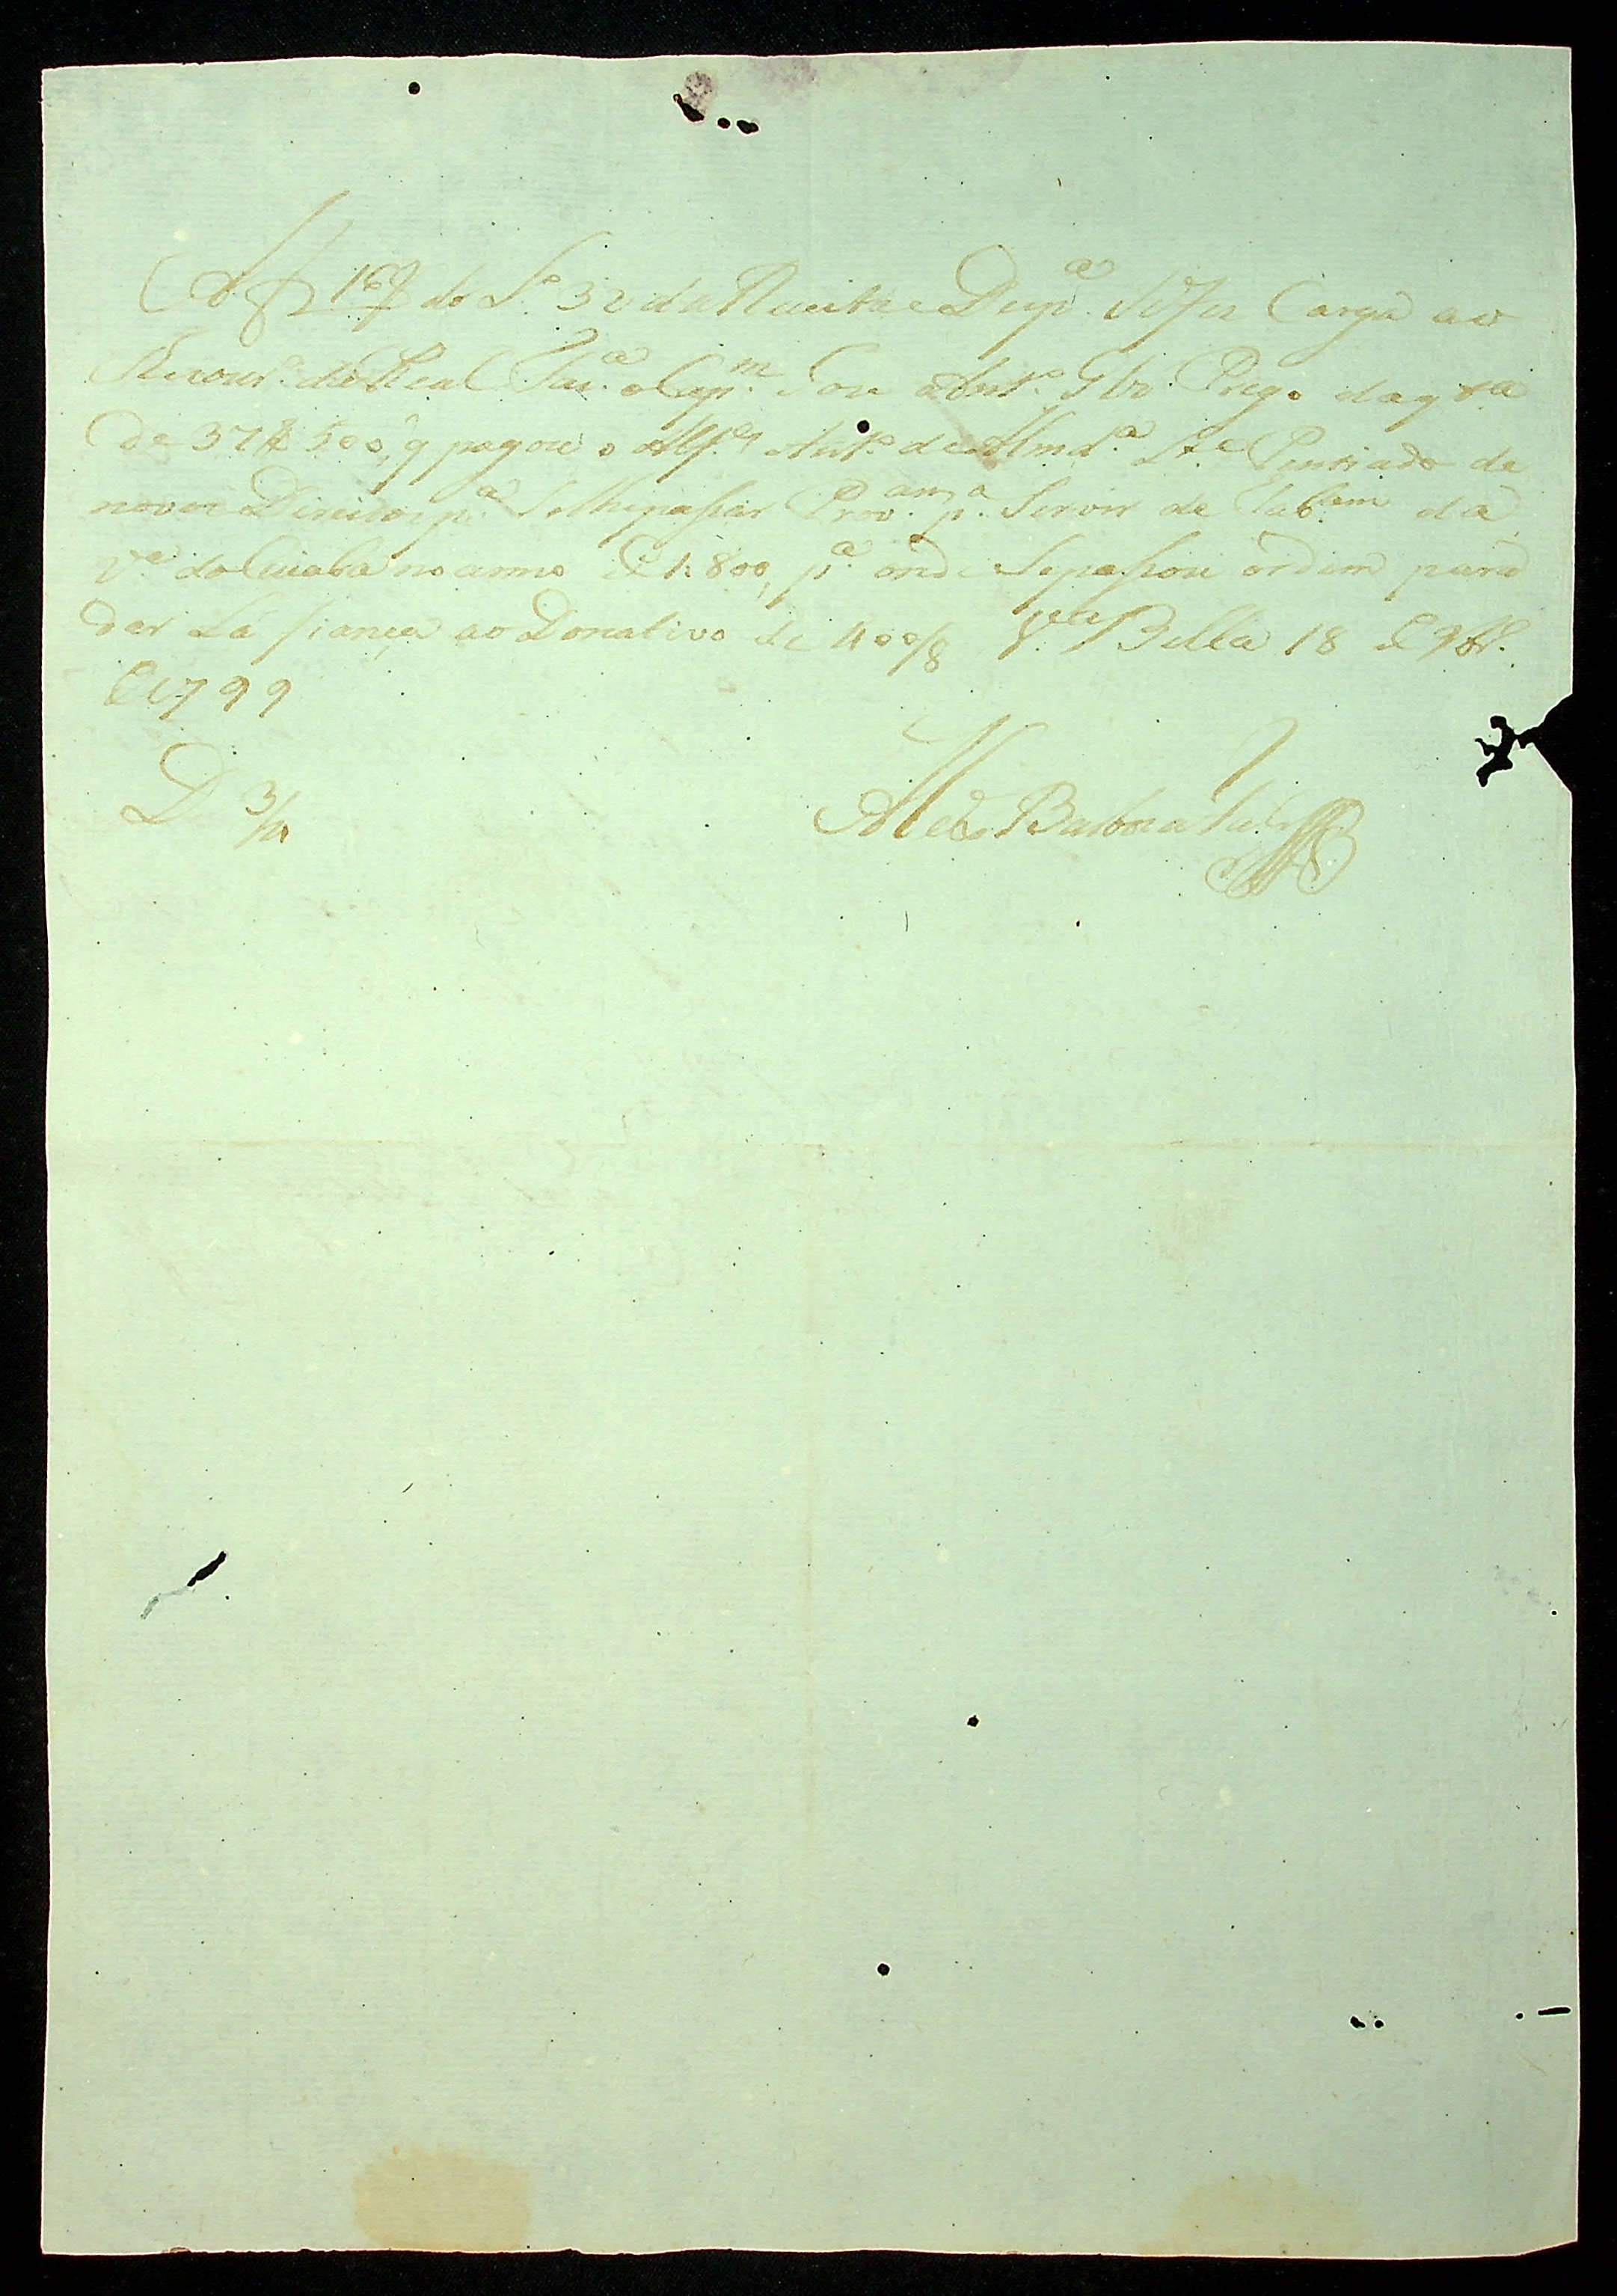 Af 167 do L.º 32 da Receita e Desp.ª Se fes Carga ao
Thezour.º da Real Faz.ª o Cap.m Jose Ant.º Glz. Prego da q.tª
de 37$500, q pagou o Alf.es Ant.º de Almd.ª L.te Penteado de
novos Direitos p.ª Selhe passar Prov.am p.ª Servir de Tab.am da
V.ª do Cuiaba no anno de 1800, p.ª onde Sepassou ordem para
dar Lá fiança ao Donativo de 400/8 V.ª Bella 18 de 9br.º
de 1799
D 3/4
Barboza